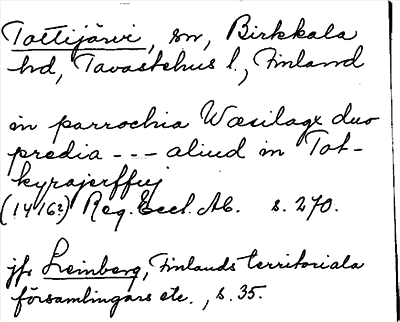 Tottijärvi, sn, Birkkala
hd, Tavastehus l., Finland
in parrochia Wæsilax duo
predia --- aliud in Tot-
kyrajerffuj
(1416?) Reg. Eccl. Ab. s. 270.
jfr Leinberg, Finlands territoriala
församlingars etc., s. 35.